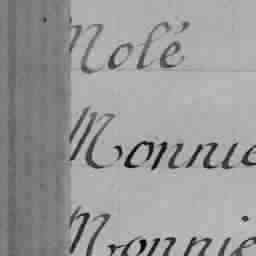 Molé
Monnie
Monnie